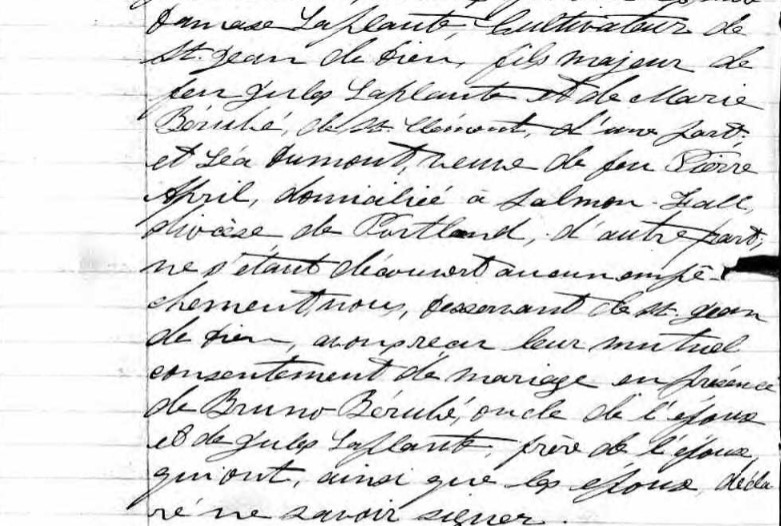 Damase Laplante, Cultivateur de
St. Jean de Dieu, fils majeur de
feu Jules Laplante et de Marie
Bérubé, de St. Clément, d'une part;
et Léa Dumont, veuve de feu Pierre
April, domiciliée à Salmon-Fall,
diocèse de Portland, d'autre part;
ne s'étant découvert aucun empê-
chement, nous, desservant de St. Jean
de Dieu, avons reçu leur mutuel
consentement de mariage en présence
de Bruno Bérubé, oncle de l'époux
et de Jules Laplante, frère de l'époux,
qui ont, ainsi que les époux, décla
ré ne savoir signer.